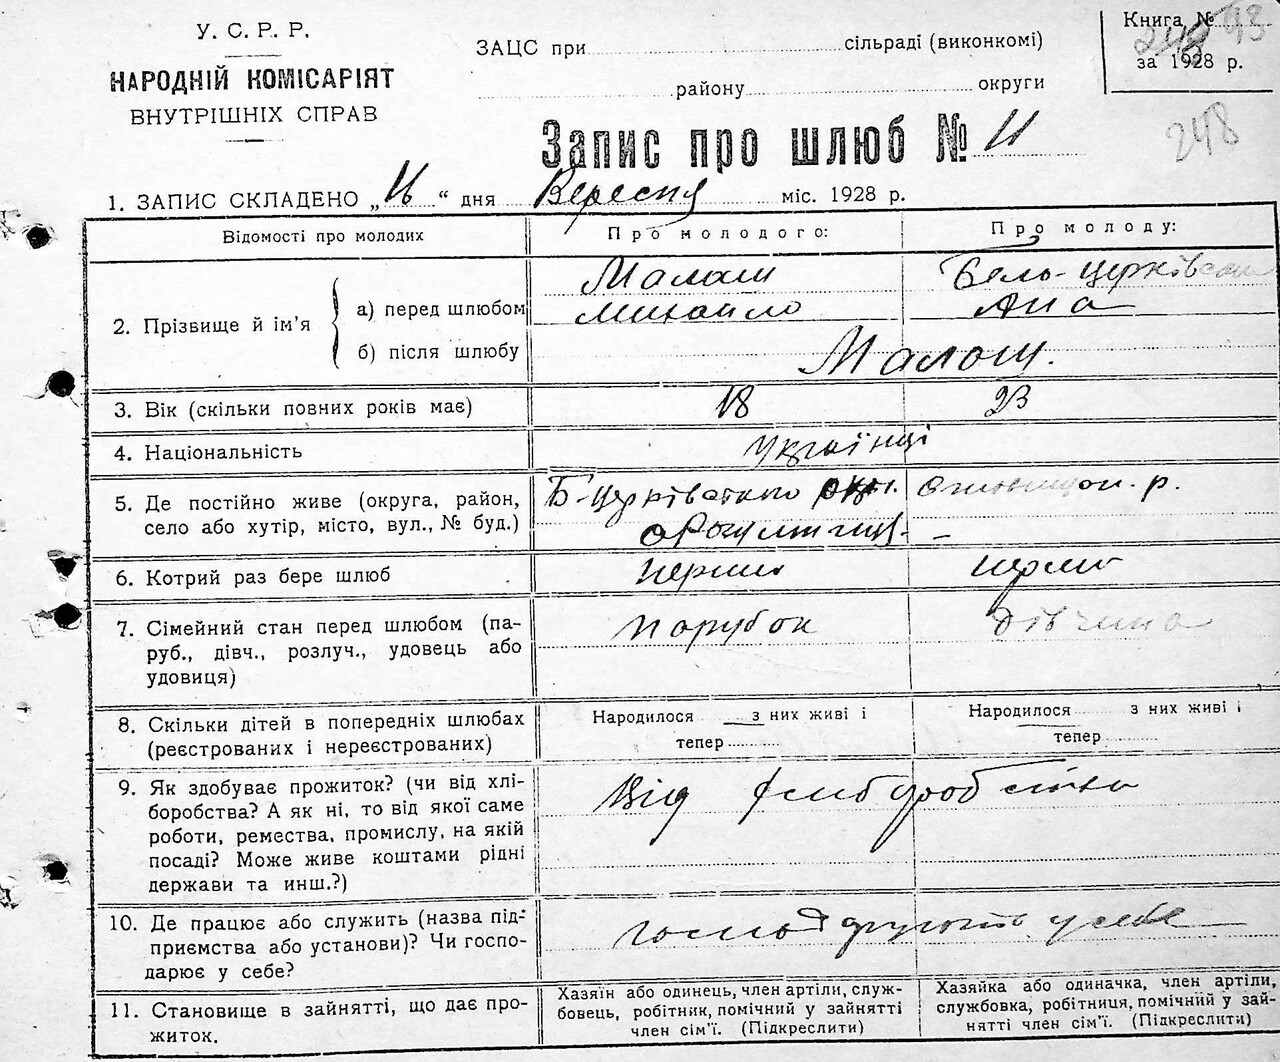 У. С. Р. Р.
НАРОДНІЙ КОМІСАРІЯТ
ВНУТРІШНІХ СПРАВ
ЗАЦС при сільраді (виконкомі)
району округи
Книга №
за 1928 р.
248
Запис про шлюб № 11
1. ЗАПИС СКЛАДЕНО „11“ дня Вересня міс. 1928 р.
Відомості про молодих
Про молодого:
Про молоду:
2. Прізвище й ім’я
а) перед шлюбом
Малаш
Михайло
Бело-Церківская
Ана
б) після шлюбу
Малош.
3. Вік (скільки повних років має)
18
23
4. Національність
Українці
5. Де постійно живе (округа, район,
село або хутір, місто, вул., № буд.)
Б-Церківського окр.
р.
6. Котрий раз бере шлюб
перший
перший
7. Сімейний стан перед шлюбом (па-
руб., дівч., розлуч., удовець або
удовиця)
парубок
дівчина
8. Скільки дітей в попередніх шлюбах
(реєстрованих і нереєстрованих)
Народилося з них живі і
тепер
Народилося з них живі і
тепер
9. Як здобуває прожиток? (чи від хлі-
боробства? А як ні, то від якої саме
роботи, ремества, промислу, на якій
посаді? Може живе коштами рідні
держави та инш.?)
Від хліборобства
10. Де працює або служить (назва під-
приємства або установи)? Чи госпо-
дарює у себе?
у себе
11. Становище в зайнятті, що дає про-
житок.
Хазяїн або одинець, член артіли, служ-
бовець, робітник, помічний у зайнятті
член сім’ї. (Підкреслити)
Хазяйка або одиначка, член артіли,
службовка, робітниця, помічний у зай-
нятті член сім’ї. (Підкреслити)